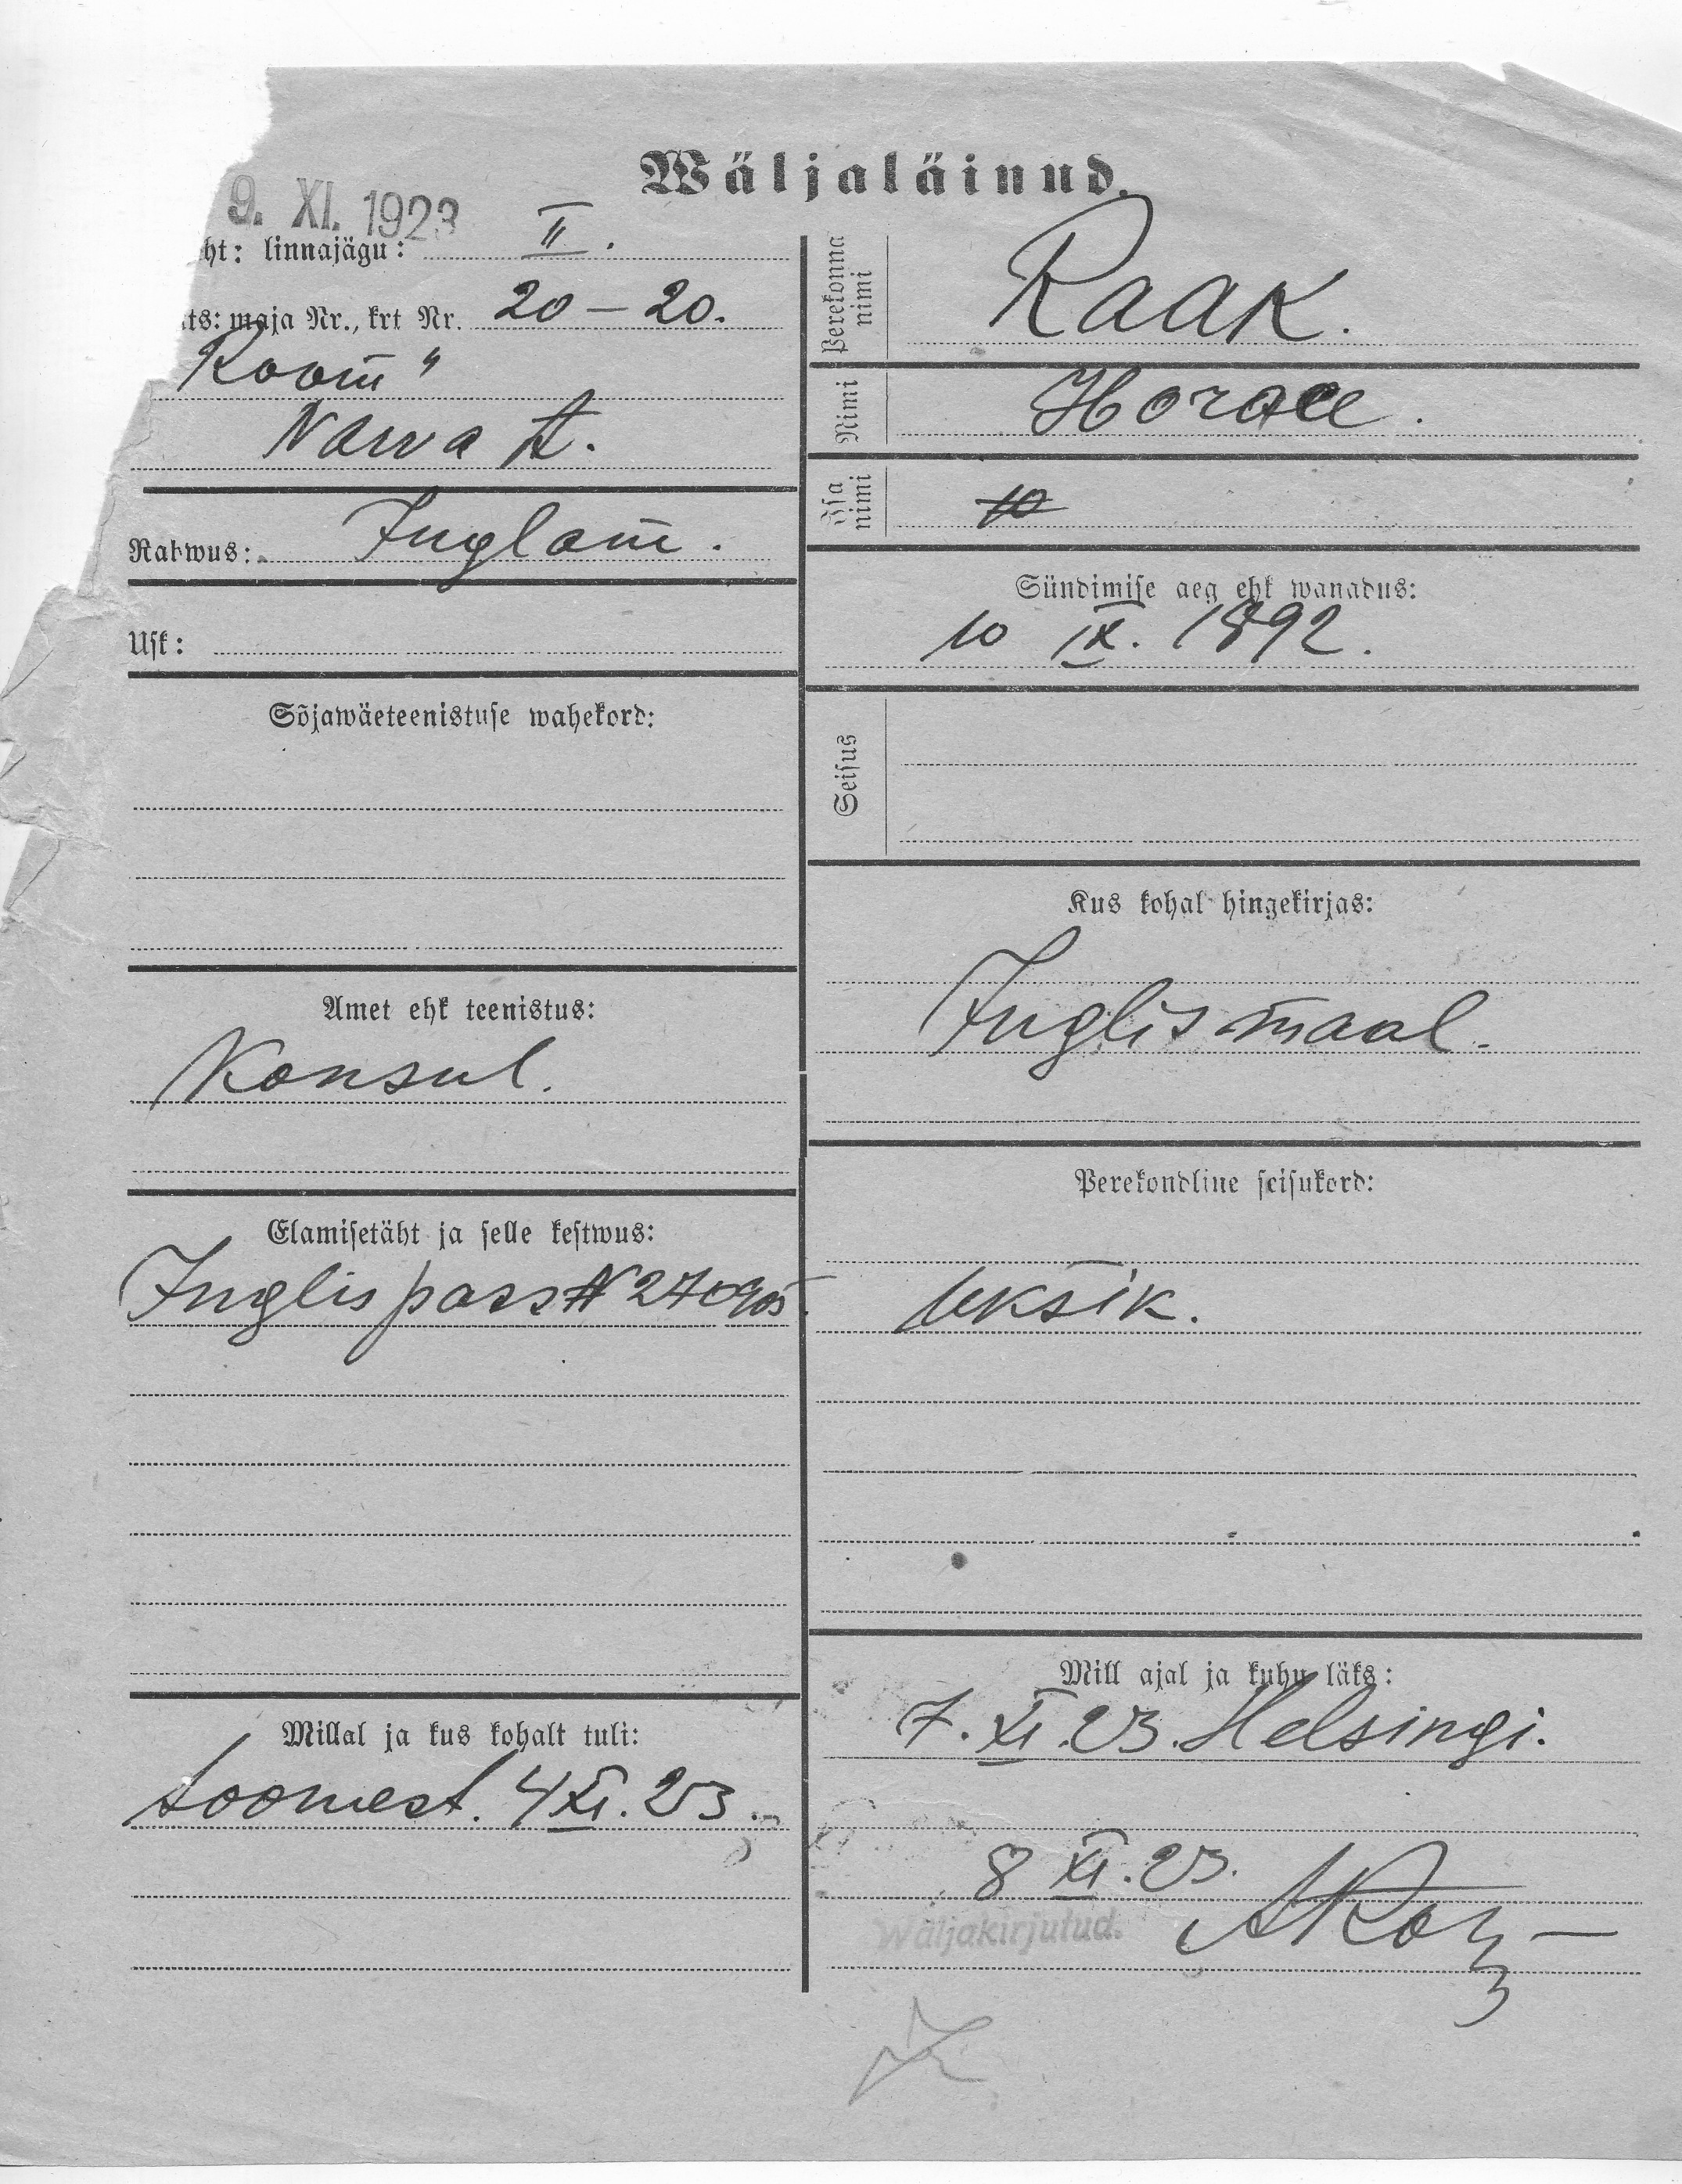 Wäljaläinud.
9. XI. 1923
ht: linnajägu: II.
ts: maja Nr., krt Nr. 20 – 20.
"
Narwa t.
Rahwus: Inglane.
Usk:
Sõjawäeteenistuse wahekord:
Amet ehk teenistus:
Konsul.
Elamisetäht ja selle kestwus:
Inglis pass N
Millal ja kus kohalt tuli:
Soomest. 4 XI. 23.
Perekonna nimi
Raak.
Nimi
Horace.
Isa nimi
10
Sündimise aeg ehk wanadus:
10 IX. 1892.
Seisus
Kus kohal hingekirjas:
Inglismaal.
Perekondline seisukord:
Üksik.
Mill ajal ja kuhu läks:
7. XI. 23. Helsingi.
8 XI. 23.
Wäljakirjutud.